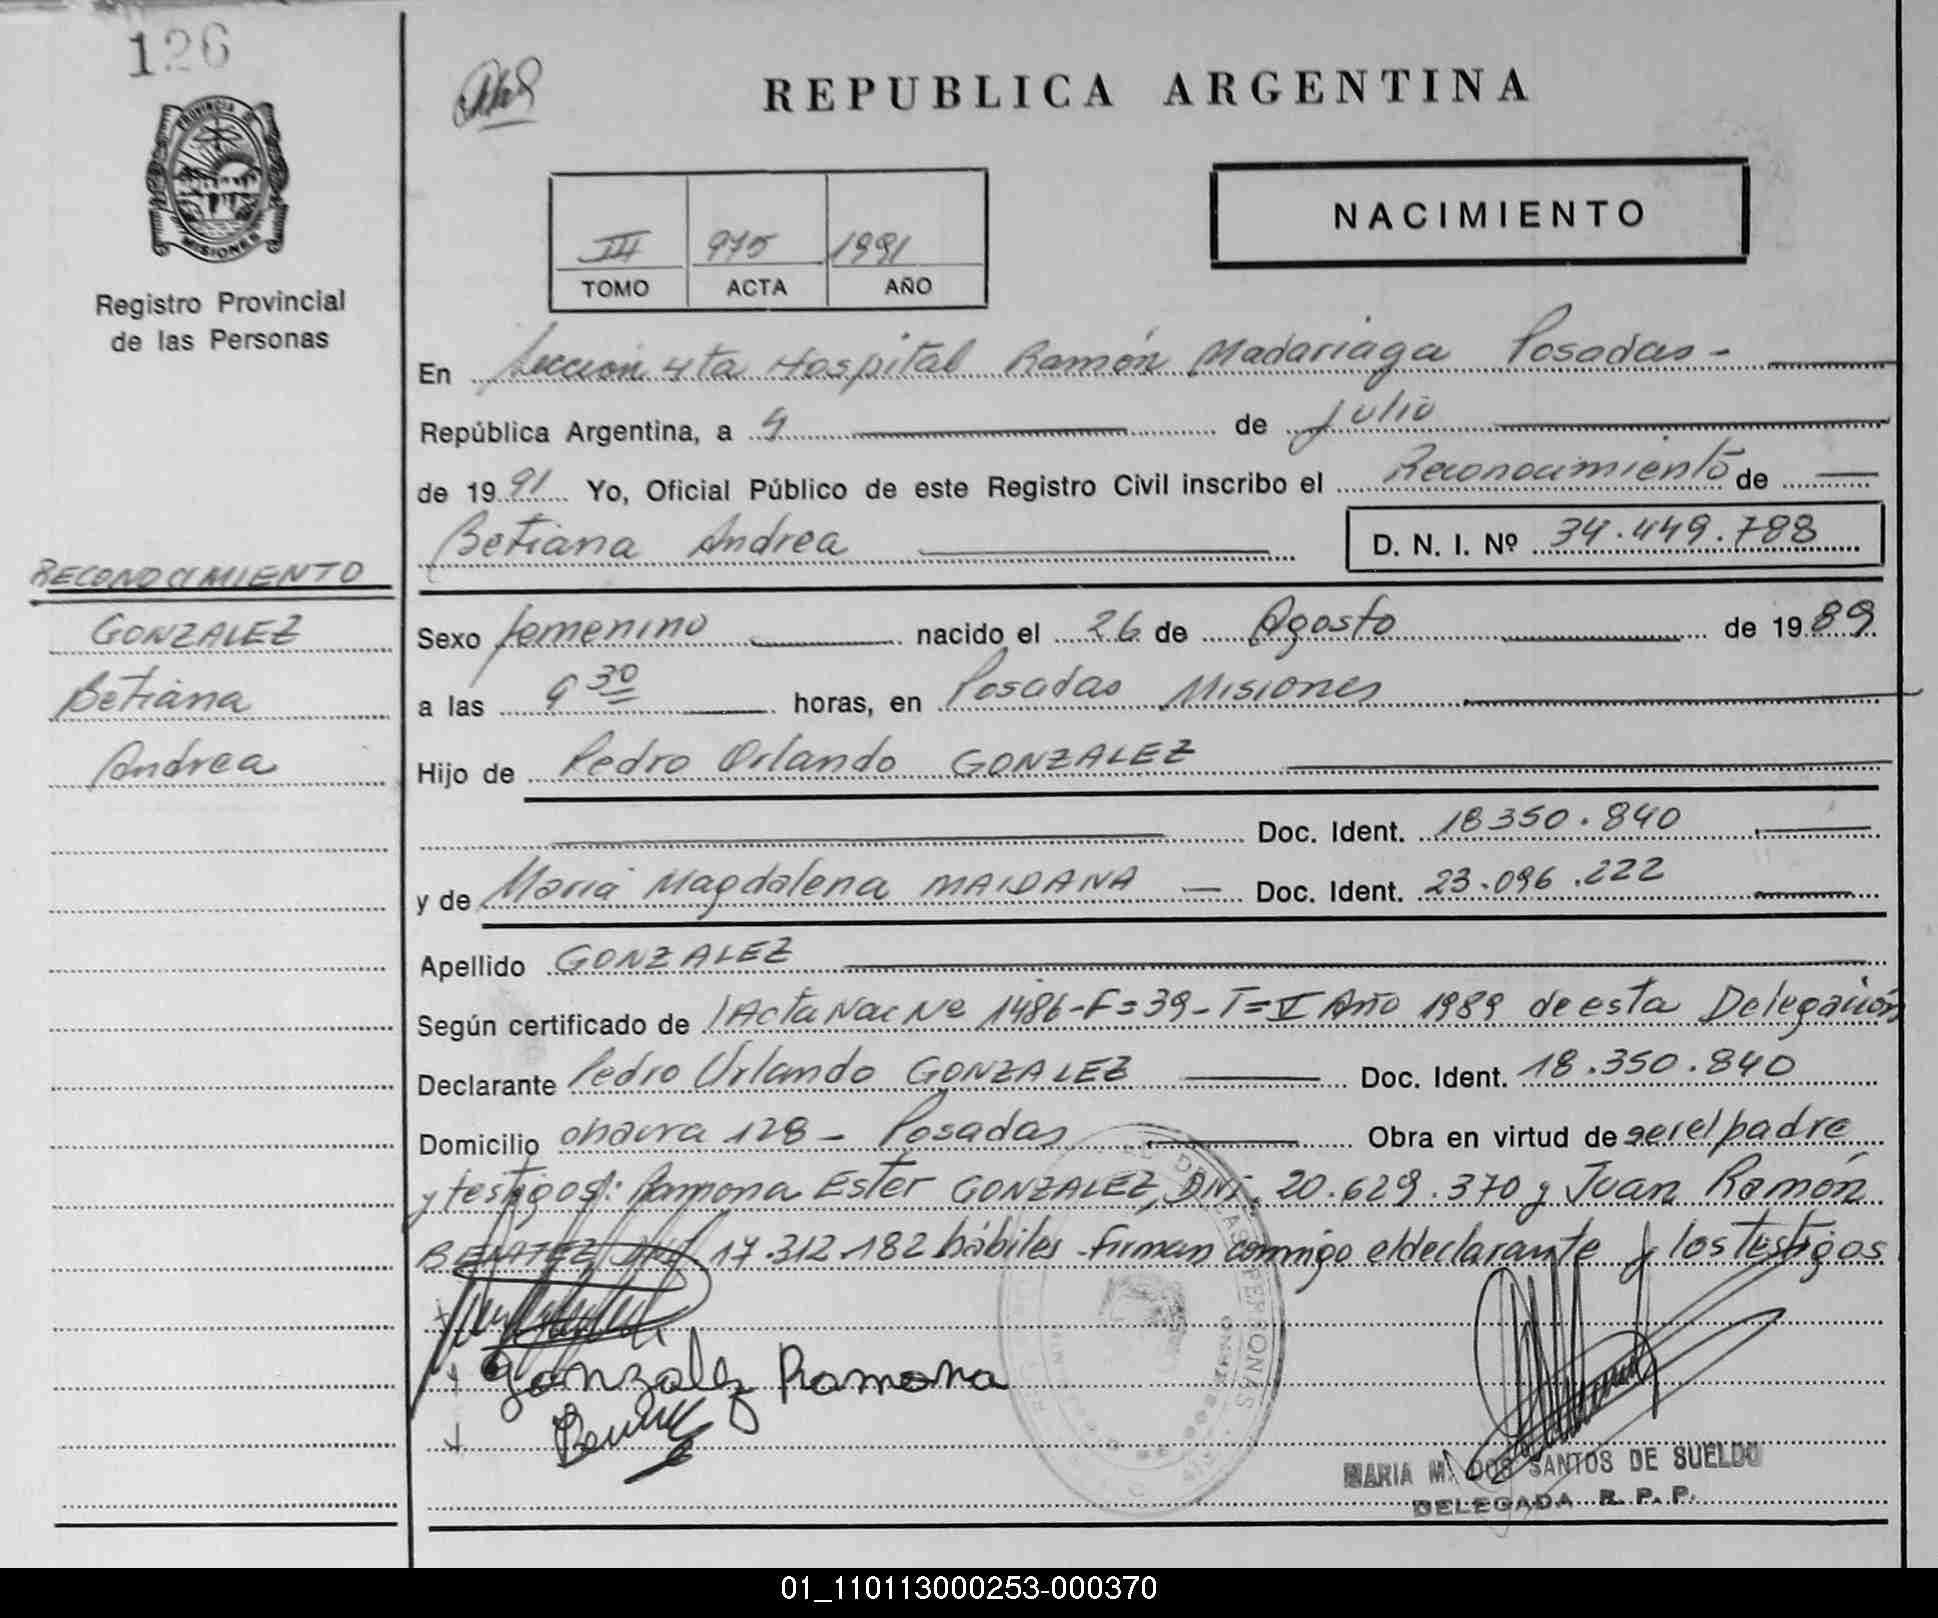 126
PROVINCIA DE
MISIONES
Registro Provincial
de las Personas
RECONOCIMIENTO
GONZALEZ
Betiana
Andrea
REPUBLICA ARGENTINA
NACIMIENTO
III 975 1991
TOMO ACTA AÑO
En Sección 4ta Hospital Ramón Madariaga Posadas -
República Argentina, a 4 de julio
de 1991 Yo, Oficial Público de este Registro Civil inscribo el Reconocimiento de
Betiana Andrea D. N. I. Nº 34.449.788
Sexo femenino nacido el 26 de Agosto de 1989
a las 9 30 horas, en Posadas Misiones
Hijo de Pedro Orlando GONZALEZ
Doc. Ident. 18350.840
y de María Magdalena MAIDANA — Doc. Ident. 23.096.222
Apellido GONZALEZ
Según certificado de Acta Nac Nº 1486-F=39-T=V Año 1989 de esta Delegación
Declarante Pedro Orlando GONZALEZ Doc. Ident. 18.350.840
Domicilio 128 - Posadas Obra en virtud de ser el padre
y testigos: Ramona Ester GONZALEZ, DNI. 20.629.370 y Juan Ramón
BENITEZ DNI 17.312.182 hábiles. firman conmigo el declarante y los testigos
Gonzalez Ramona
MARIA M. DOS SANTOS DE SUELDO
DELEGADA R. P. P.
01_110113000253-000370